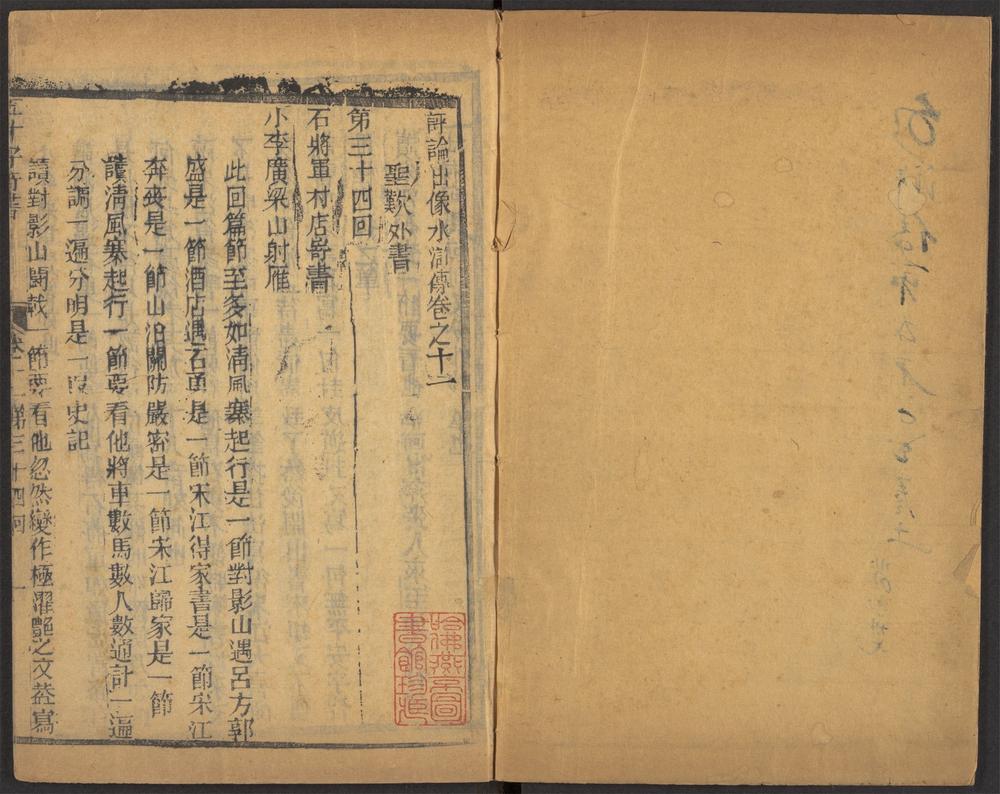 評論出像水滸傳卷之十二
聖歎外書
第三十四回
石將軍村店寄書
小李廣梁山射雁
此回篇節至多如清風寨起行是一節對影山遇呂方郭
盛是一節酒店遇石勇是一節宋江得家書是一節宋江
奔喪是一節山泊關防嚴密是一節宋江歸家是一節
讀清風寨起行一節要看他將車數馬數人數通計一遍
分調一遍分明是一段史記
讀對影山鬪戟一節要看他忽然變作極濯艷之文葢寫
五才子奇書
第三十四回
一
哈佛燕京圖
書館珍藏